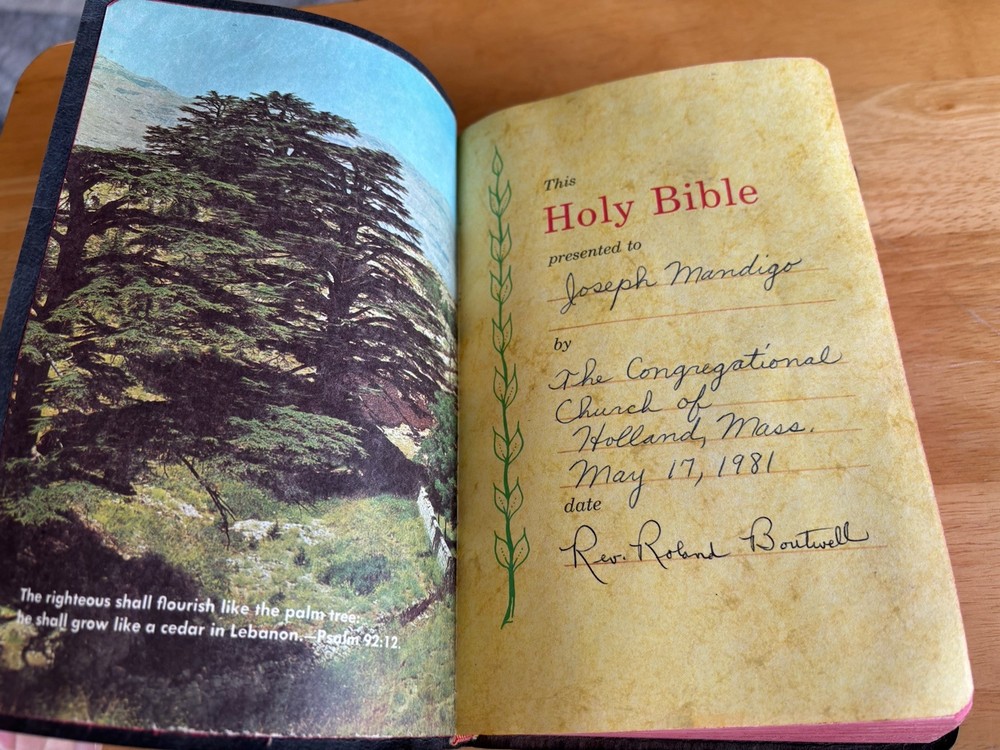 The righteous shall flourish like the palm tree:
he shall grow like a cedar in Lebanon.—Psalm 92:12.
This
Holy Bible
presented to
Joseph Mandigo
by
The Congregational
Church of
Holland, Mass.
May 17, 1981
date
Rev. Roland Boutwell